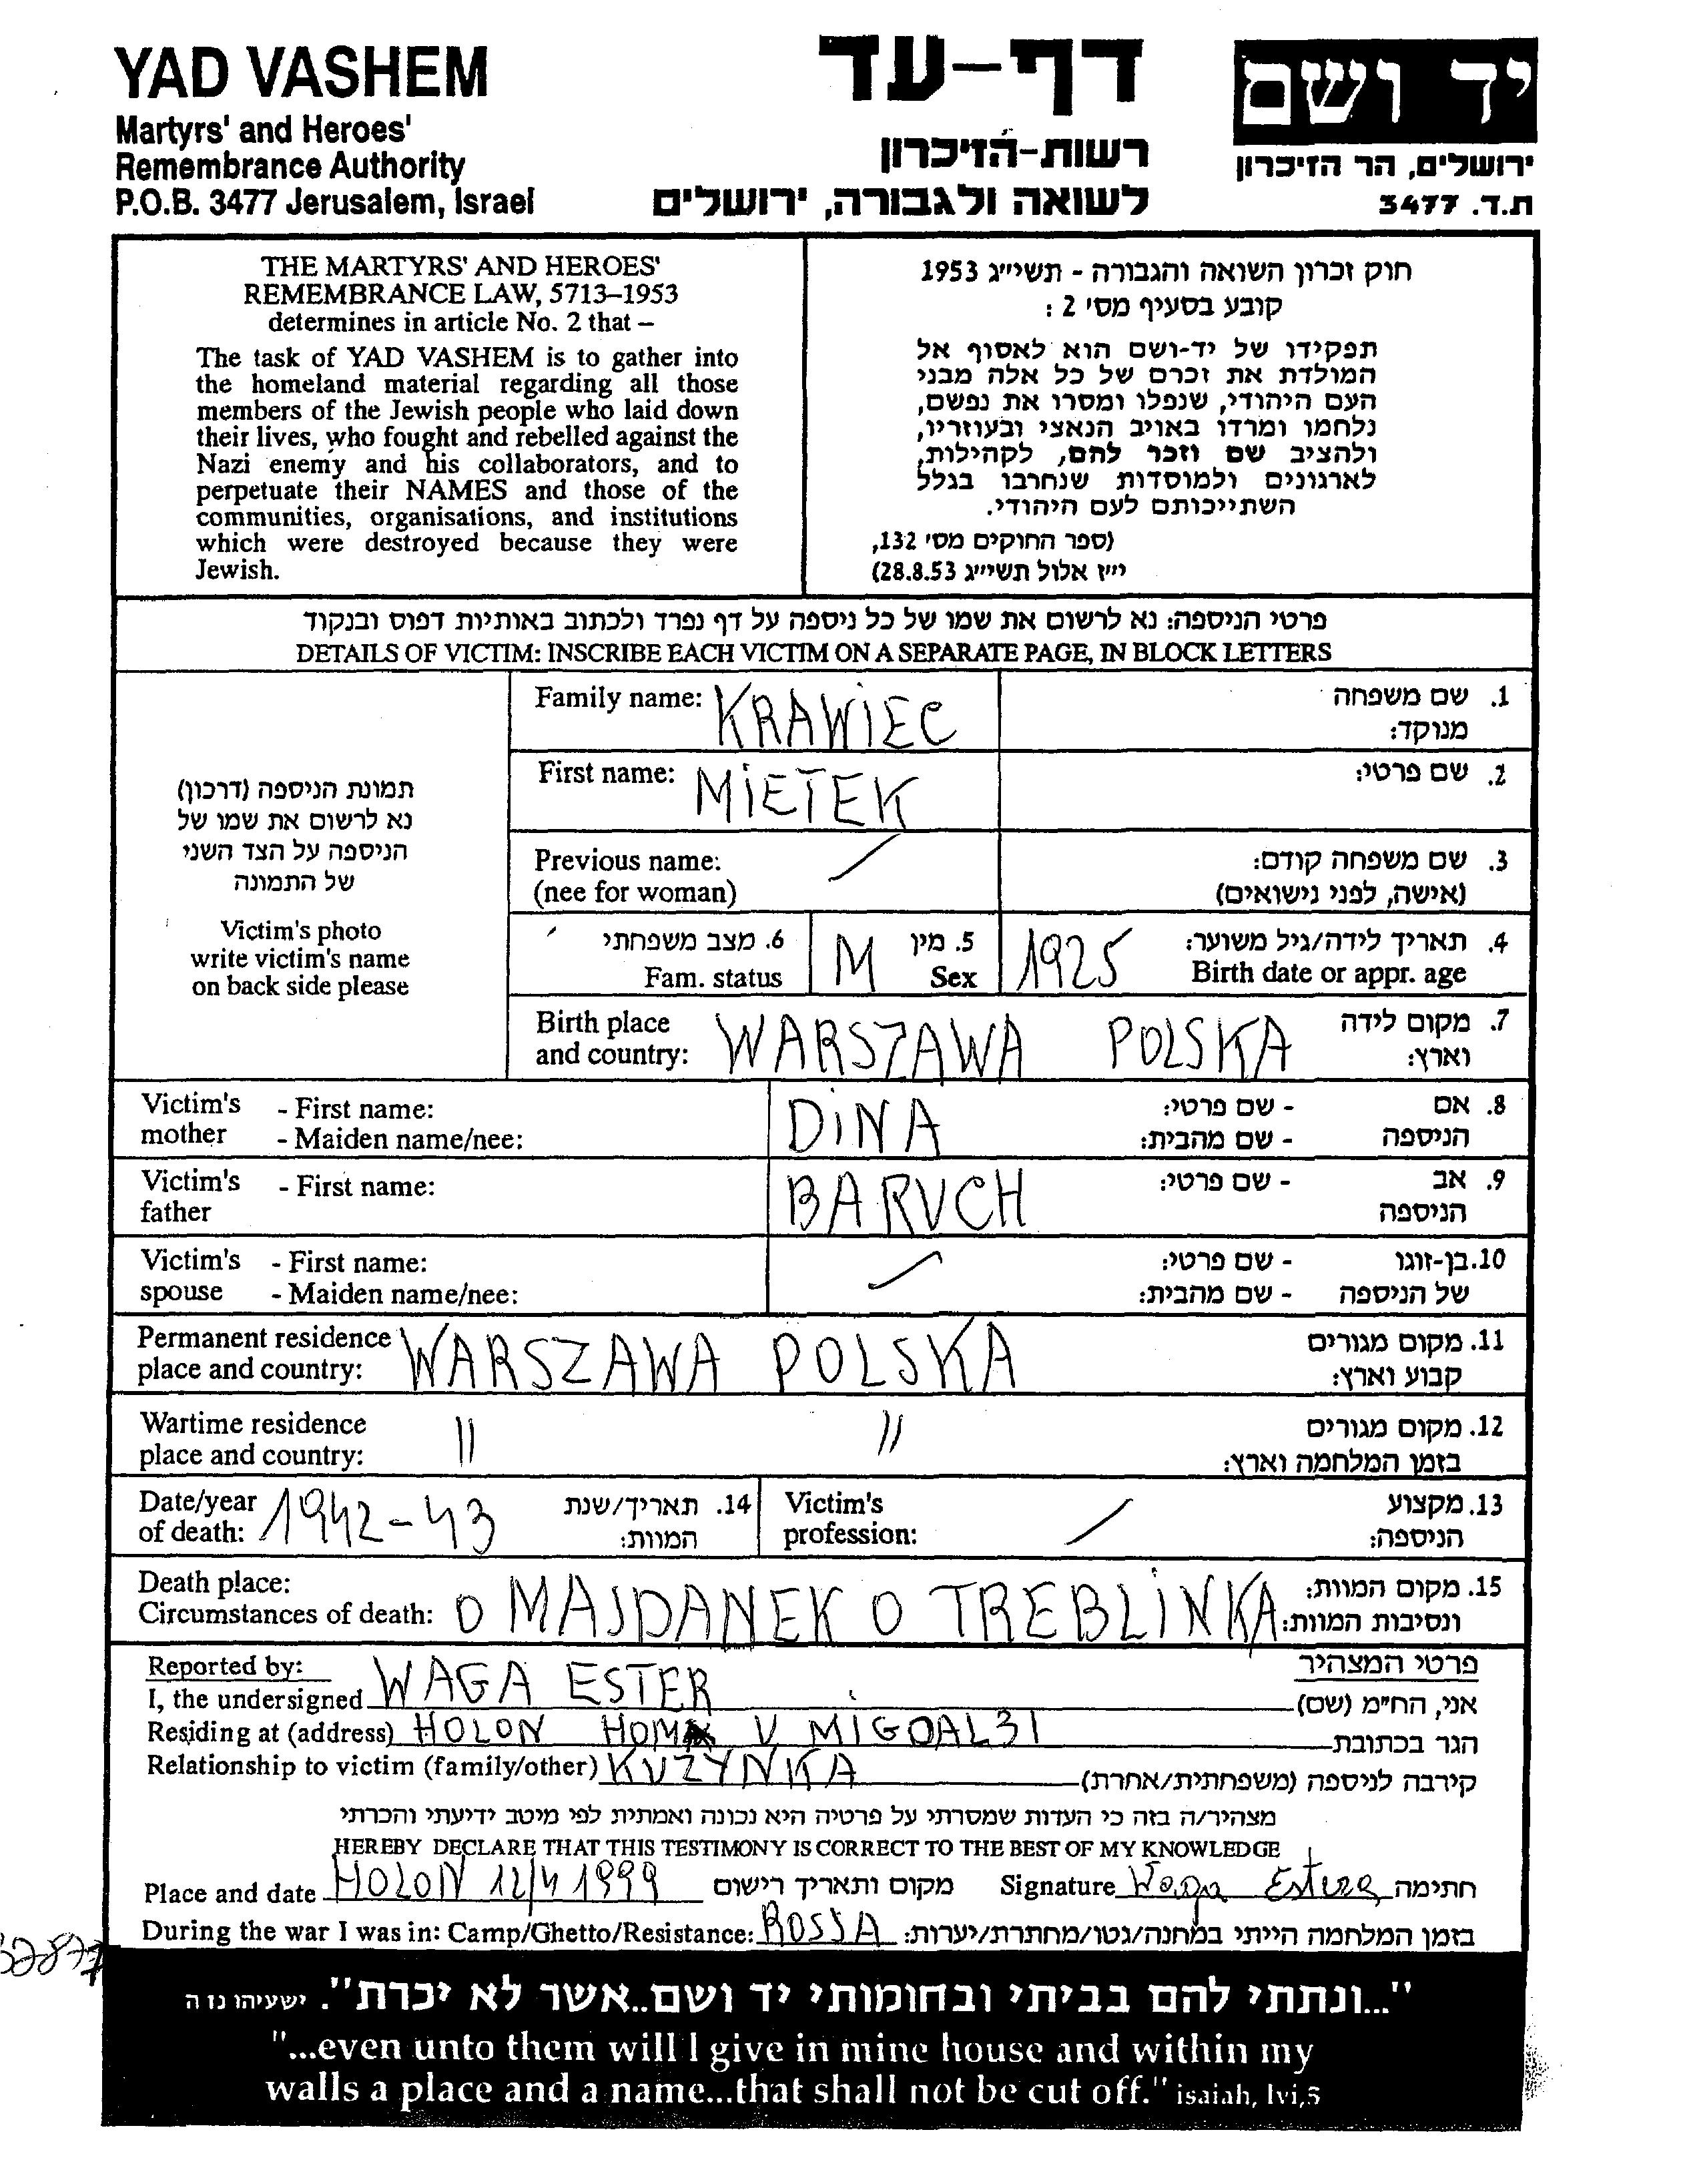 YAD VASHEM
Martyrs' and Heroes'
Remembrance Authority
P.O.B. 3477 Jerusalem, Israel
דף-עד
רשות-הזיכרון
לשואה ולגבורה, ירושלים
יד ושם
ירושלים, הר הזיכרון
ת.ד. 3477
THE MARTYRS' AND HEROES'
REMEMBRANCE LAW, 5713–1953
determines in article No. 2 that –
The task of YAD VASHEM is to gather into
the homeland material regarding all those
members of the Jewish people who laid down
their lives, who fought and rebelled against the
Nazi enemy and his collaborators, and to
perpetuate their NAMES and those of the
communities, organisations, and institutions
which were destroyed because they were
Jewish.
חוק זכרון השואה והגבורה - תשי״ג 1953
קובע בסעיף מס׳ 2 :
תפקידו של יד-ושם הוא לאסוף אל
המולדת את זכרם של כל אלה מבני
העם היהודי, שנפלו ומסרו את נפשם,
נלחמו ומרדו באויב הנאצי ובעוזריו,
ולהציב שם וזכר להם, לקהילות,
לארגונים ולמוסדות שנחרבו בגלל
השתייכותם לעם היהודי.
(ספר החוקים מס׳ 132,
י״ז אלול תשי״ג 28.8.53)
פרטי הניספה: נא לרשום את שמו של כל ניספה על דף נפרד ולכתוב באותיות דפוס ובנקוד
DETAILS OF VICTIM: INSCRIBE EACH VICTIM ON A SEPARATE PAGE, IN BLOCK LETTERS
תמונת הניספה (דרכון)
נא לרשום את שמו של
הניספה על הצד השני
של התמונה
Victim's photo
write victim's name
on back side please
Family name: KRAWIEC 1. שם משפחה
מנוקד:
First name: MIETEK 2. שם פרטי:
Previous name: / 3. שם משפחה קודם:
(nee for woman) (אישה, לפני נישואים)
6. מצב משפחתי M 5. מין 1925 4. תאריך לידה/גיל משוער:
Fam. status Sex Birth date or appr. age
Birth place WARSZAWA POLSKA 7. מקום לידה
and country: וארץ:
Victim's - First name: DINA - שם פרטי: 8. אם
mother - Maiden name/nee: - שם מהבית: הניספה
Victim's - First name: BARUCH - שם פרטי: 9. אב
father הניספה
Victim's - First name: / - שם פרטי: 10. בן-זוגו
spouse - Maiden name/nee: - שם מהבית: של הניספה
Permanent residence WARSZAWA POLSKA 11. מקום מגורים
place and country: קבוע וארץ:
Wartime residence 〃 〃 12. מקום מגורים
place and country: בזמן המלחמה וארץ:
Date/year 1942-43 14. תאריך/שנת Victim's / 13. מקצוע
of death: המוות: profession: הניספה:
Death place: 15. מקום המוות:
Circumstances of death: O MAJDANEK O TREBLINKA ונסיבות המוות:
Reported by: פרטי המצהיר
I, the undersigned WAGA ESTER אני, הח״מ (שם)
Residing at (address) HOLON V MIGDAL 31 הגר בכתובת
Relationship to victim (family/other) KUZYNKA קירבה לניספה (משפחתית/אחרת)
מצהיר/ה בזה כי העדות שמסרתי על פרטיה היא נכונה ואמתית לפי מיטב ידיעתי והכרתי
HEREBY DECLARE THAT THIS TESTIMONY IS CORRECT TO THE BEST OF MY KNOWLEDGE
Place and date HOLON 12/4 1999 מקום ותאריך רישום Signature Waga Estera חתימה
During the war I was in: Camp/Ghetto/Resistance: ROSJA בזמן המלחמה הייתי במחנה/גטו/מחתרת/יערות:
"...ונתתי להם בביתי ובחומותי יד ושם..אשר לא יכרת". ישעיהו נו ה
"...even unto them will I give in mine house and within my
walls a place and a name...that shall not be cut off." isaiah, lvi,5